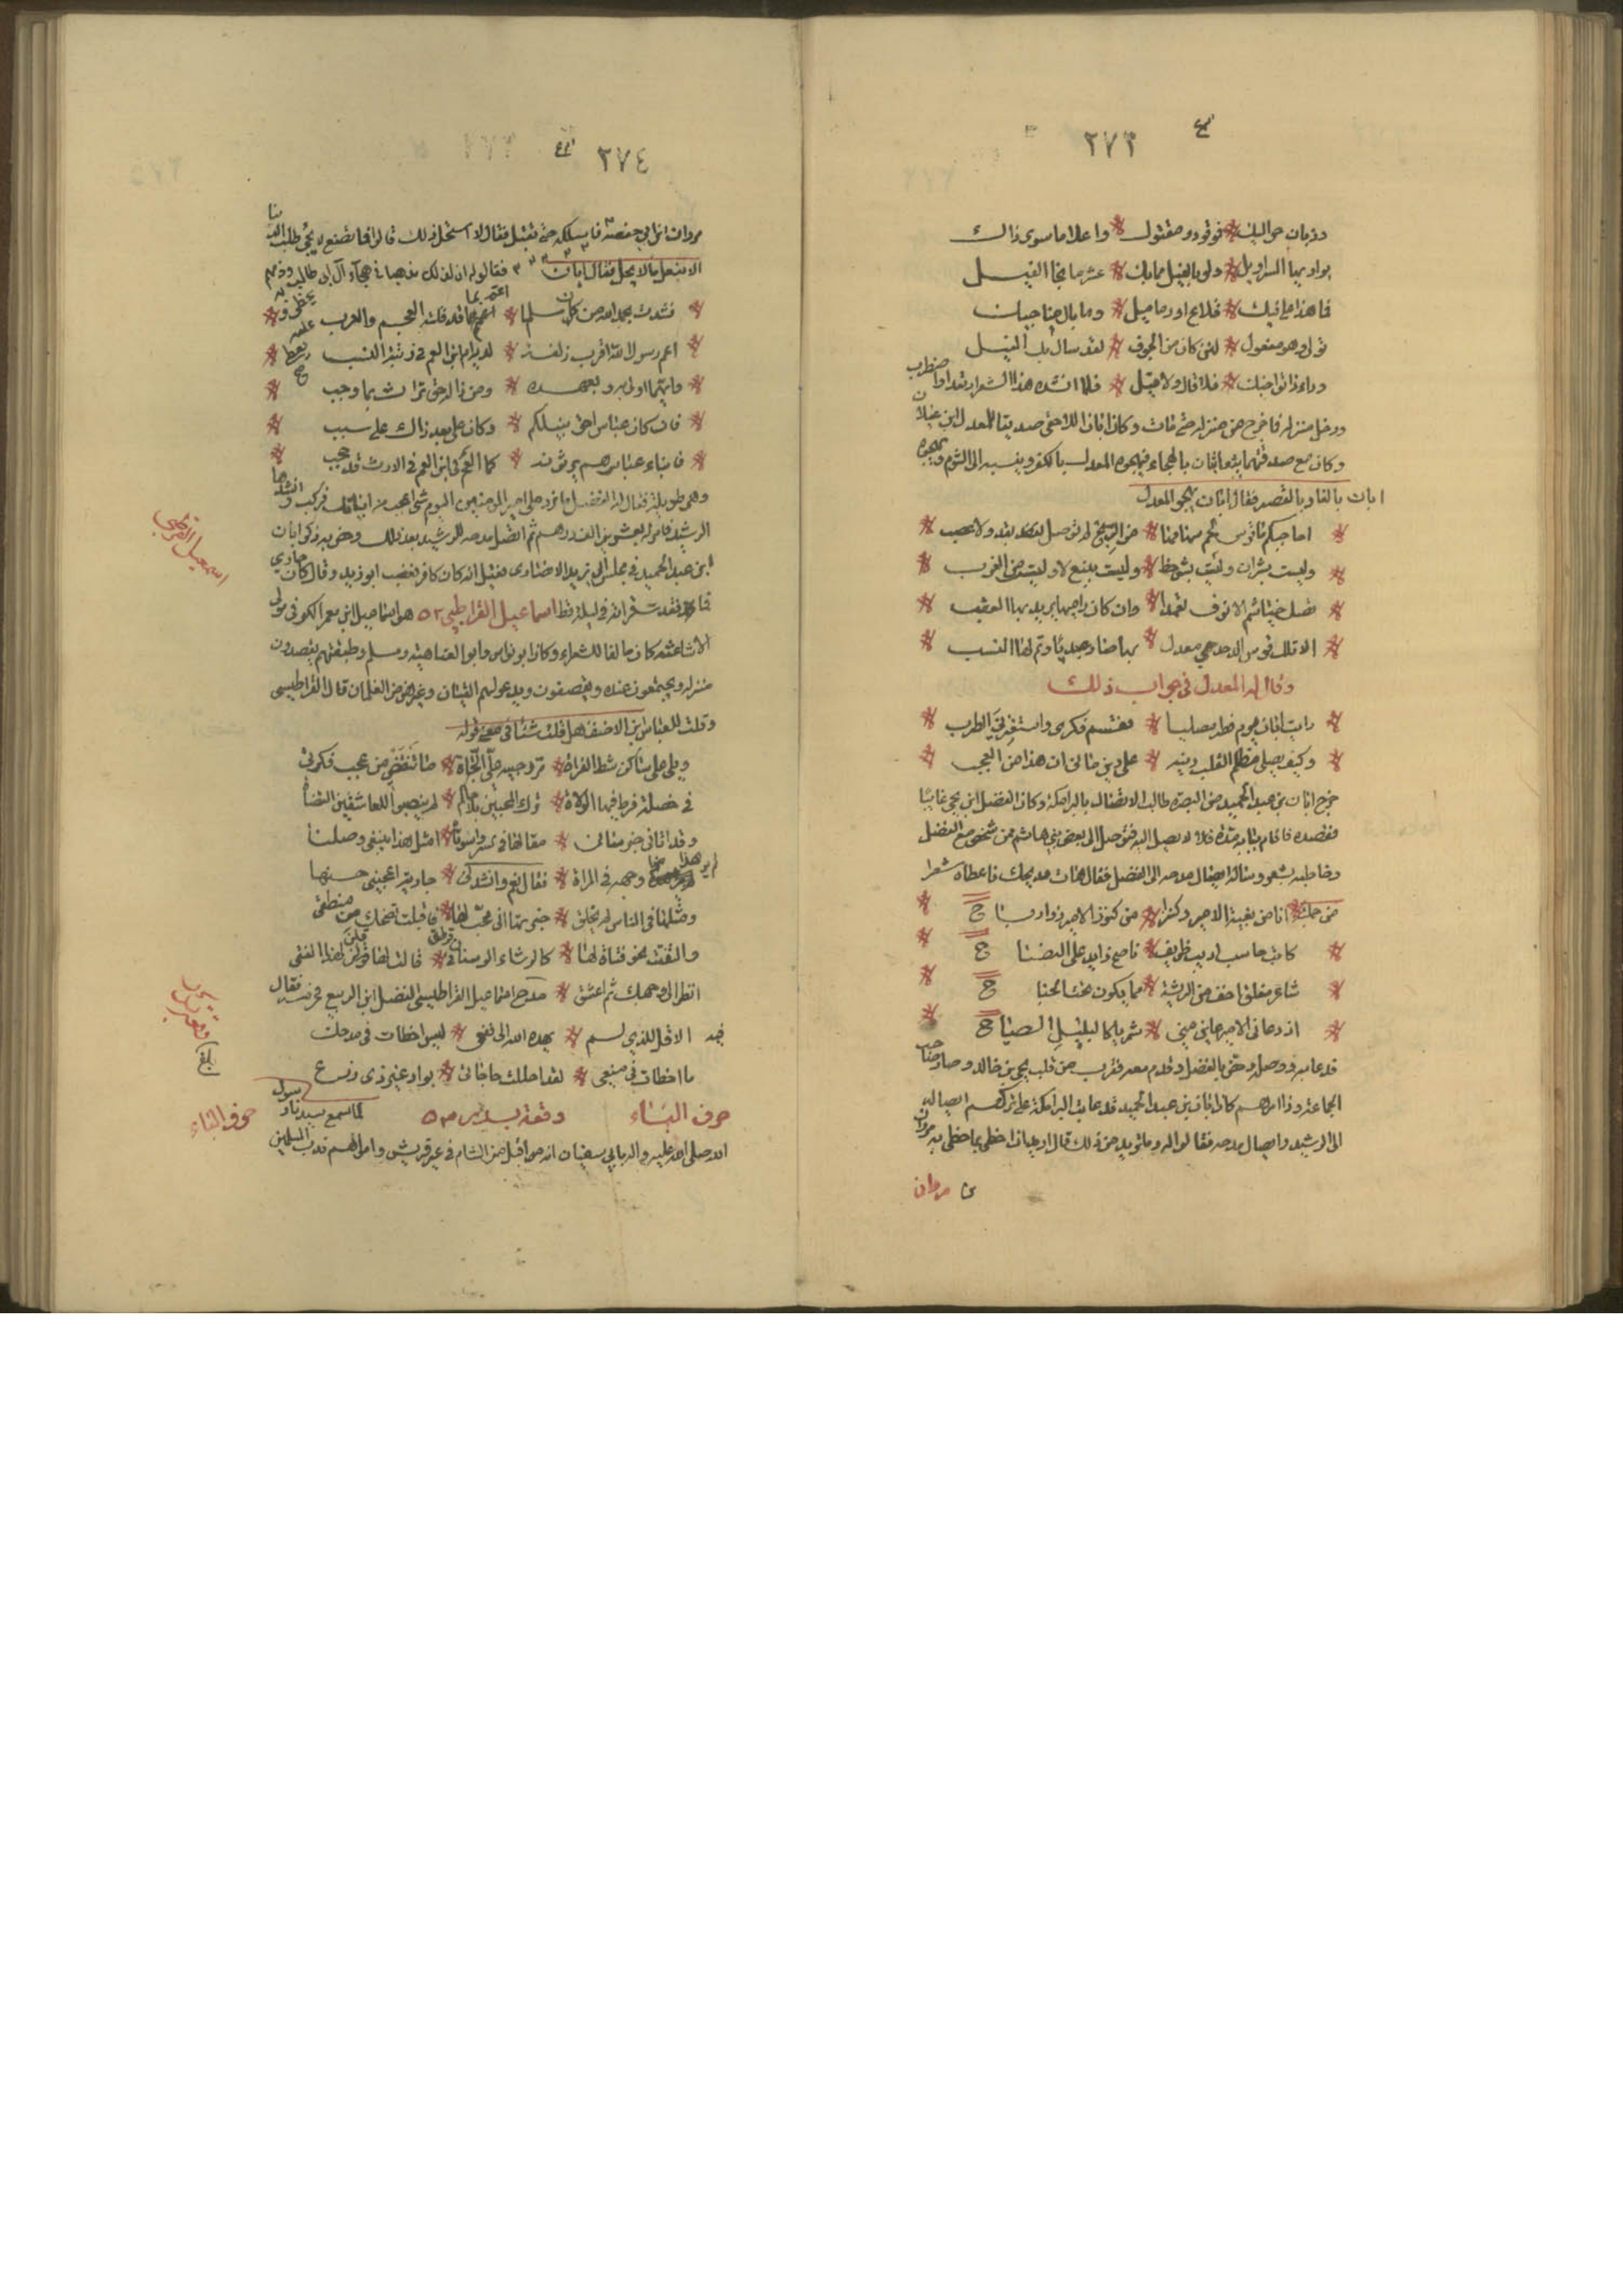 ٢٧٣
وذبان حواليك * فوقوذ ومقتول * واعلا ما سوى ذاك
بواديها السراويل * ولو بالفيل مما بك * عشر ما نجا الفيل
فما هذا على فيك * قلاع او دماميل * وما بال
تولى وهو مفعول * لئن كان من الجوف * لقد سال بك النيل
وداء ذا تواخيك * فلا قال ولا قيل * فلما انشده هذا الشعر ارتعد واضطرب
ودخل منزله فما خرج من منزله حتى مات وكان ابان اللاحقي صديقا للمعدل ابن غيلان
وكان مع صداقتهما يتعابثان بالهجاء فيهجوه المعدل بالكفر وينسبه الى الشوم ويهجوه
ابان بالفساء وبالقصر فقال ابان يهجو المعدل
احاجيكم ما قوس لحم سهامها * من الريح لم توصل بقد ولا عصب *
وليست بشريان وليست بشوحط * وليست بنبع لا وليست من الغرب *
الا تلك قوس الدحدحي معدل * بها صار عبديا وتم لها النسب *
وقال له المعدل في جواب ذلك
رايت ابانا يوم فطر مصليا * فقسم فكري واستفزني الطرب *
وكيف يصلي مظلم القلب دينه * على دين ماني ان هذا من العجب *
خرج ابان بن عبد الحميد من البصرة طالبا الاتصال بالبرامكة وكان الفضل ابن يحيى غايبا
فقصده فاقام ببابه مدة فلا لا يصل اليه فتوصل الى بعض بني هاشم ممن شخص مع الفضل
وخاطبه بشعر وساله ايصال مدحه الى الفضل فقال هات مديحك فاعطاه شعرا
من جملته * انا من بغية الامير وكنز * من كنوز الامير ذو ارباح *
كاتب حاسب اديب ظريف * ناصح زايد على النصاح *
شاعر مفلق اخف من الريشة * مما يكون تحت الجناح *
ان دعاني الامير عاين مني * شمريا كالبلبل الصياح *
فدعا به ووصله وخص بالفضل وقدم معه فقرب من قلب يحيى بن خالد وصار صاحب
الجماعة وذا امرهم كان ابان بن عبد الحميد قد عاتب البرامكة على تركهم ايصاله
الى الرشيد وايصال مدحه فقالوا له وما تريد من ذلك قال اريد ان احظى بما حظى به مروان
مروان
٢٧٤
مروان ابن ابي حفصة فاسلكه حتى نقبل فقال لا استحل ذلك قال فما تصنع لا يجي طلب الدنيا
الا بفعل ما لا يحل فقال ابان فقالوا له ان لذلك مذهبا في هجاء آل ابي طالب وذمهم
نشدت بحق الله من كان مسلما * اعم بما قد قلته العجم والعرب *
اعم رسول الله اقرب زلفة * لديه ام ابن العم في رتبة النسب *
وايهما اولى به وبعهده * ومن ذا له حق التراث بما وجب *
فان كان عباس احق بتلكم * وكان علي بعد ذاك على سبب *
فابناء عباس هم يرثونه * كما العم لابن العم في الارث قد حجب *
وهي طويلة فقال له الفضل ما يرد على امير المومنين اليوم شي اعجب من ابياتك فركب وانشدها
الرشيد فامر له بعشرين الف درهم ثم اتصل مدحه للرشيد بعد ذلك وخص به ذكر ابان
ابن عبد الحميد في مجلس ابي زيد الانصاري فقيل انه كان كافر فغضب ابو زيد وقال كان جاري
فما فقدت قرآنه في ليلة قط اسماعيل القراطيسي ٥٢ هو اسماعيل ابن معمر الكوفي مولى
الاشاعثة كان مالفا للشعراء وكان ابو نواس وابو العتاهية ومسلم وطبقتهم يقصدون
منزله ويجتمعون عنده ويقصفون ويدعو لهم القيان وغيرهن من الغلمان قال القراطيسي
وقلت للعباس ابن الاحنف هل قلت شيئا في معنى قولي
ويلي على ساكن شط الفراة * مرر حبيه علي الحياة * ما تنقضي من عجب فكرتي
في خصلة فرط فيها الولاة * ترك المحبين بلا حاكم * لم ينصبوا للعاشقين القضاة
وقد اتاني خبر ساني * مقالها في السر واسوءتاه * امثل هذا يبتغي وصلنا
لم ير هذا وجهه في المراة * فقال نعم وانشدني * جارية اعجبني حسنها
ومثلها في الناس لم يخلق * خبرتها اني محب لها * فاقبلت تضحك من منطقي
والتفتت نحو فتاة لها * كالرشاء الوسنان في قرطق * قالت لها قولي لهذا الفتى
انظر الى وجهك ثم اعشق * مدح اسماعيل القراطيسي الفضل ابن الربيع فحرمه فقال
فيه الا قل للذي لم * يهده الله الى نفعي * لين اخطات في مدحك
ما اخطات في منعي * لقد احللت حاجاتي * بواد غير ذي زرع
حرف الباء وقعة بدر ٥٣ لما سمع سيدنا رسول
الله صلى الله عليه واله بابي سفيان انه مر اقبل من الشام في عير قريش واموالهم ندب المسلمين
اسمعيل القراطيسي
بلغ